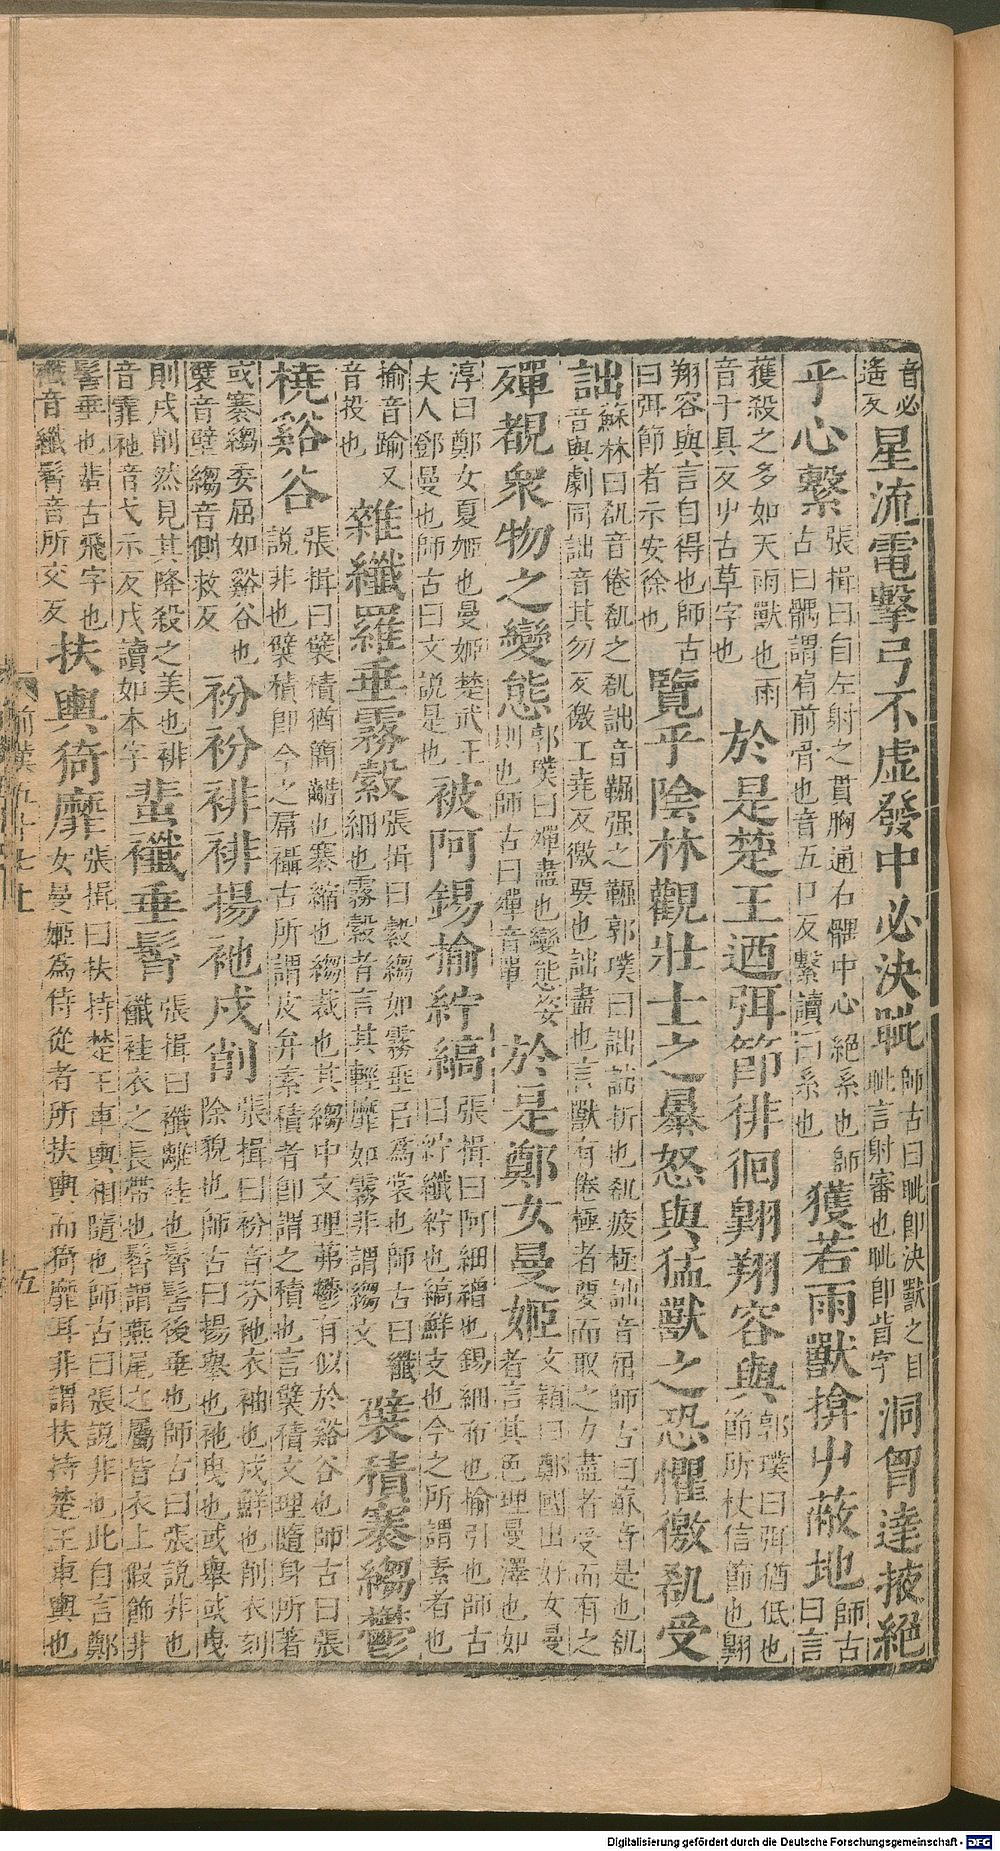 音必遙反星流電擊弓不虛發中必決眦師古曰眦即決獸之目眦言射審也眦即眥字洞胷達掖絕
乎心繫張揖曰自左射之貫胸通右髃中心絕系也師古曰髃謂肩前骨也音五口反繫讀曰系也獲若雨獸揜屮蔽地師古曰言
獲殺之多如天雨獸也雨音于具反屮古草字也於是楚王迺弭節徘徊翱翔容與郭璞曰弭猶低也節所杖信節也翱
翔容與言自得也師古曰弭節者示安徐也覽乎陰林觀壯士之暴怒與猛獸之恐懼徼㕁受
詘蘇林曰㕁音倦㕁之㕁詘音强之郭璞曰詘詘折也㕁疲極詘音屈師古曰蘇音是也㕁音與劇同詘音其勿反徼工堯反徼要也詘盡也言獸有倦極者要而取之力盡者受而有之
殫覩衆物之變態郭璞曰殫盡也變態姿則也師古曰殫音單於是鄭女曼姬文穎曰鄭國出好女曼者言其色理曼澤也如
淳曰鄭女夏姬也曼姬楚武王夫人鄧曼也師古曰文說是也被阿錫揄紵縞張揖曰阿細繒也錫細布也揄引也師古曰紵織紵也縞鮮支也今之所謂素者也
揄音踰又音投也雜纖羅垂霧縠張揖曰縠縐如霧垂以爲裳也師古曰纖細也霧縠者言其輕靡如霧非謂縐文襞積褰縐鬱
橈谿谷張揖曰襞積猶簡齰也褰縮也縐裁也其縐中文理茀鬱有似於谿谷也師古曰張說非也襞積即今之帬襵古所謂皮弁素積者即謂之積也言襞積文理隨身所著
或褰縐委屈如谿谷也襞音壁縐音側救反衯衯裶裶揚衪戌削張揖曰衯音芬衪衣袖也戌鮮也削衣刻除貌也師古曰揚舉也衪曳也或舉或曳
則戌削然見其降殺之美也裶音霏衪音弋示反戌讀如本字蜚襳垂髾張揖曰襳離袿也髾髻後垂也師古曰張說非也襳袿衣之長帶也髾謂燕尾之屬皆衣上假飾非
髾垂也蜚古飛字也襳音纖髾音所交反扶輿猗靡張揖曰扶持楚王車輿相隨也師古曰張說非也此自言鄭女曼姬爲侍從者所扶輿而猗靡耳非謂扶持楚王車輿也
前漢五十七上 五
Digitalisierung gefördert durch die Deutsche Forschungsgemeinschaft - DFG